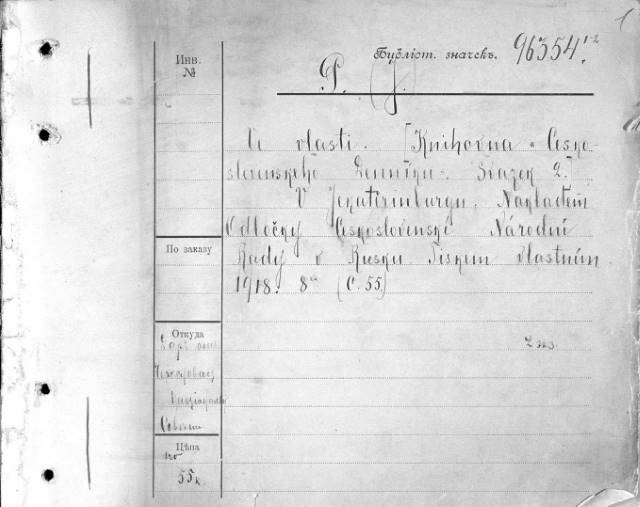 1
Инв.
№
Библіот. значекъ. 96354.1-2
P. J.
Ve vlasti. [Knihovna Česko-
slovenského Denníku. Svazek 2.]
V Jekatěrinburgu. Nákladem
Odbočky Československé Národní
Rady v Rusku. Tiskem vlastním
1918. 8° (C. 55)
По заказу
Откуда
2 экз.
Цѣна
55к